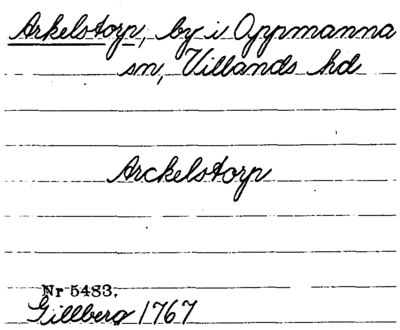 Arkelstorp, by i Oppmanna
sn, Villands hd
Arckelstorp
Nr 5483.
Gillberg 1767